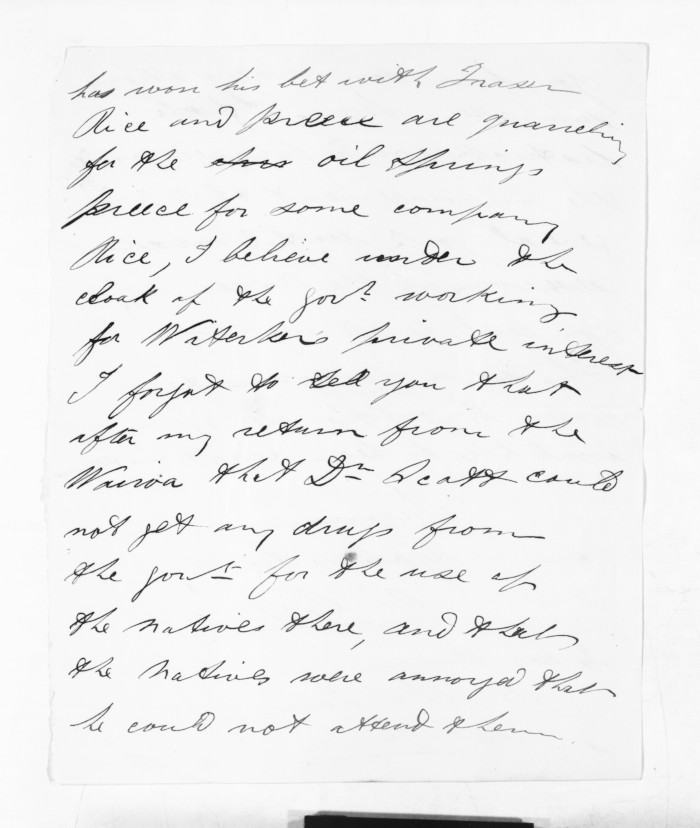 has won his bet with Fraser
Rice and preece are quarreling
for the oil springs
preece for some company
Rice, I believe under the
cloak of the govt working
for Witerkers private interest
I forgot to tell you that
after my return from the
Wairoa that Dr Scott could
not get any drugs from
the govt for the use of
the natives there, and that
the natives were annoyed that
he could not attend them